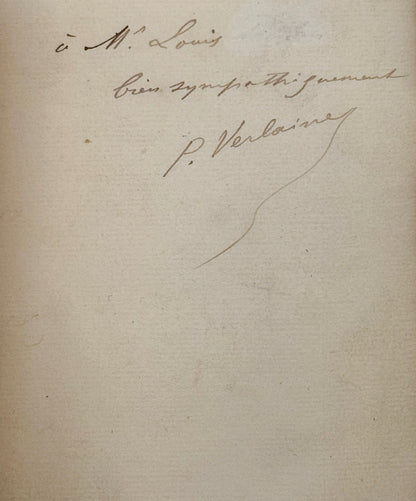 à Mr Louis
bien sympathiquement
P. Verlaine